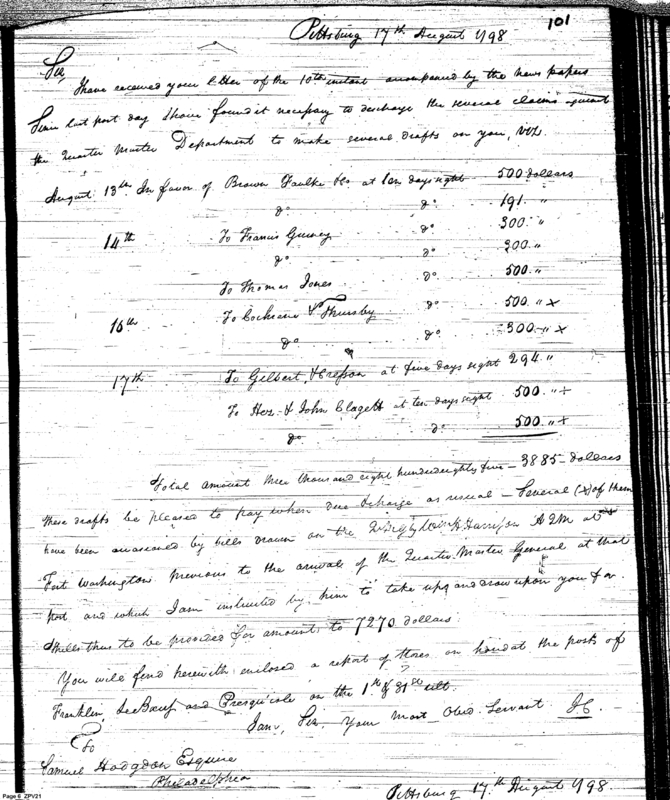 101
Pittsburg 17th August 1798
Sir,
I have received your letter of the 10th instant accompanied by the news papers
Since last post day I have found it necessary to discharge the several claims against
the Quarter Master Department to make several drafts on you, viz.
August 13th In favor of Brown Faulke & Co at ten days sight 500 dollars
do do 191 "
14th To Francis Gurney do 300 "
do do 200 "
To Thomas Jones 500 "
16th To Cochrane & Thursby do 500 " x
do do 300 " x
17th To Gilbert & Cresson at five days sight 294 "
To Hez. & John Clagett at ten days sight 500 " x
do do 500 " x
Total amount three thousand eight hundred eighty five — 3885 — dollars
these drafts be pleased to pay when due & charge as usual — Several (x) of them
have been occasioned by bills drawn on the Harrison A QM at
Fort Washington previous to the arrival of the Quarter Master General at that
post and which I am instructed by him to take up and draw upon you for.
bills thus to be provided for amounts to 7270 dollars.
You will find herewith enclosed a report of Stores on hand at the posts of
Franklin, LeBœuf and Presquisle on the 31st ult.
I am, Sir, Your Most Obed. Servant I C.
To
Samuel Hodgdon Esquire
Philadelphia
Pittsburg 17th August 1798
Page 6 ZPV21